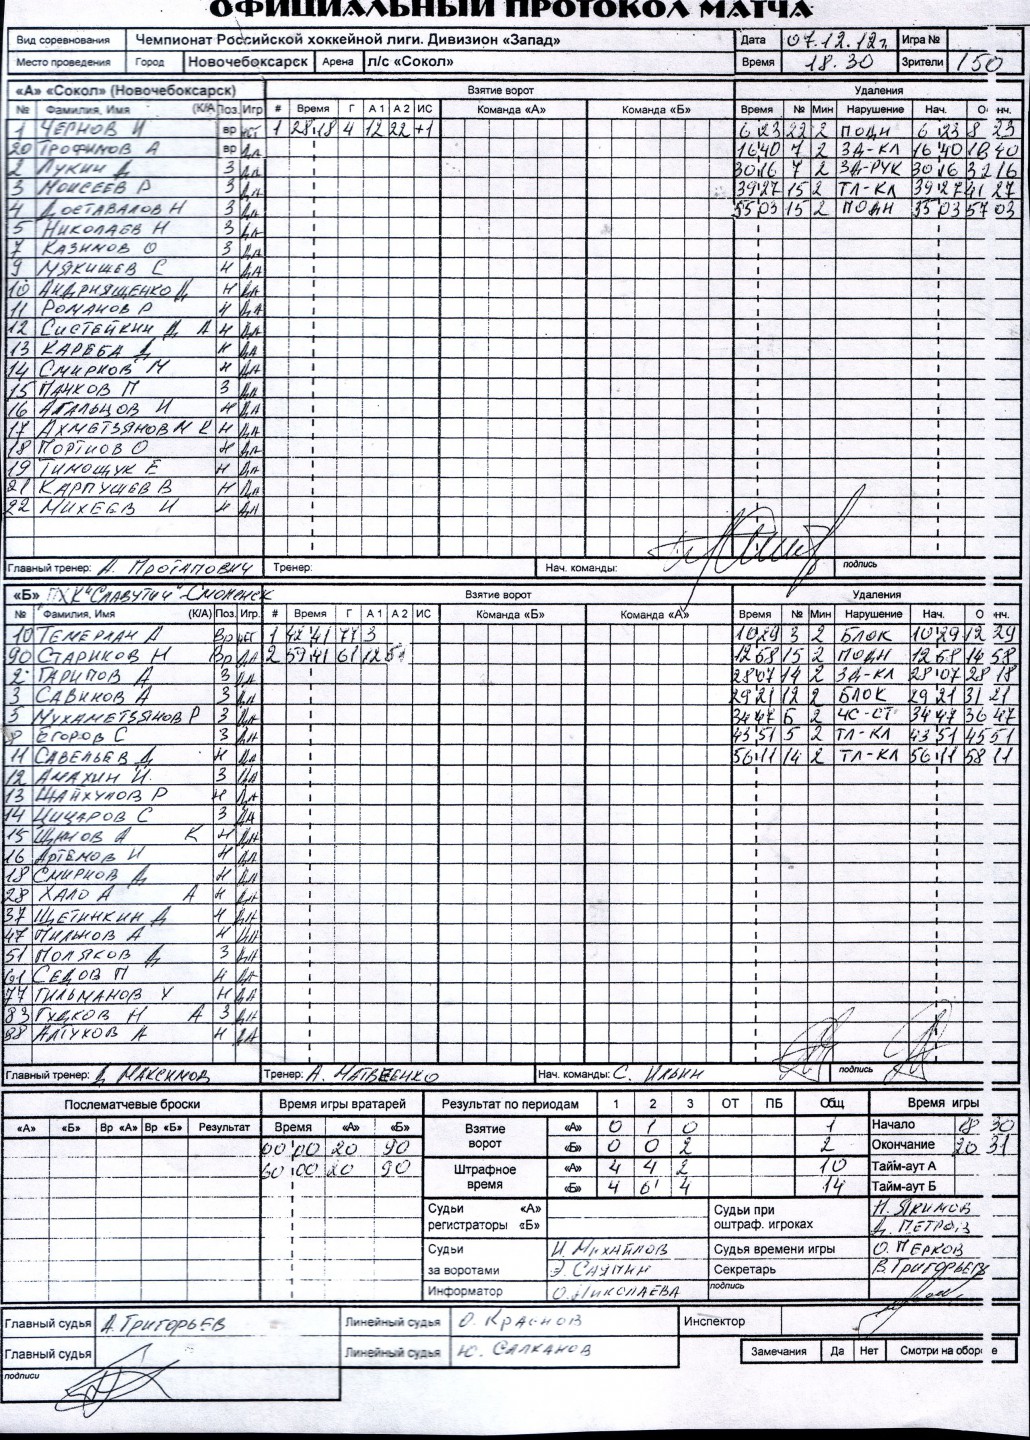 ОФИЦИАЛЬНЫЙ ПРОТОКОЛ МАТЧА
Вид соревнования Чемпионат Российской хоккейной лиги. Дивизион «Запад» Дата 07.12.12г. Игра №
Место проведения Город Новочебоксарск Арена л/с «Сокол» Время 18.30 Зрители 150
«А» «Сокол» (Новочебоксарск) Взятие ворот Удаления
№ Фамилия, Имя (К/А) Поз. Игр # Время Г А 1 А 2 ИС Команда «А» Команда «Б» Время № Мин Нарушение Нач. Оконч.
1 ЧЕРНОВ И вр 1 28 18 4 12 22 +1 6 23 22 2 ПОДН 6 23 8 23
20 ТРОФИМОВ А вр ДА 16 40 7 2 ЗД-КЛ 16 40 18 40
2 ЛУКИН Д З ДА 30 16 7 2 ЗД-РУК 30 16 32 16
3 МОИСЕЕВ Р З ДА 39 27 15 2 ТЛ-КЛ 39 27 41 27
4 ДОСТАВАЛОВ Н З ДА 55 03 15 2 ПОДН 55 03 57 03
5 НИКОЛАЕВ Н З ДА
7 КАЗИМОВ О З ДА
9 МЯКИШЕВ С Н ДА
10 АНДРИЯЩЕНКО Д Н ДА
11 РОМАНОВ Р Н ДА
12 СИСТЕЙКИН Д А Н ДА
13 КАРЕБА Д Н ДА
14 СМИРНОВ М Н ДА
15 ПАНКОВ П З ДА
16 АГАЛЬЦОВ И Н ДА
17 АХМЕТЗЯНОВ М К Н ДА
18 ПОРТНОВ О Н ДА
19 ТИМОЩУК Е Н ДА
21 КАРПУШЕВ В Н ДА
22 МИХЕЕВ И Н ДА
Главный тренер: А. ПРОТАПОВИЧ Тренер: Нач. команды: подпись
«Б» ПХК "СЛАВУТИЧ" СМОЛЕНСК Взятие ворот Удаления
№ Фамилия, Имя (К/А) Поз. Игр. # Время Г А 1 А 2 ИС Команда «Б» Команда «А» Время № Мин Нарушение Нач. Оконч.
10 ТЕМЕРЛАН А Вр НЕТ 1 42 41 77 3 10 29 3 2 БЛОК 10 29 12 29
90 СТАРИКОВ Н Вр ДА 2 59 41 61 12 51 12 58 15 2 ПОДН 12 58 14 58
2 ГАРИПОВ Д З ДА 28 07 14 2 ЗД-КЛ 28 07 28 18
3 САВИНОВ А З ДА 29 21 12 2 БЛОК 29 21 31 21
5 МУХАМЕТЗЯНОВ Р З ДА 34 47 5 2 ЧС-СТ 34 47 36 47
ЕГОРОВ С З ДА 43 51 5 2 ТЛ-КЛ 43 51 45 51
11 САВЕЛЬЕВ Д Н ДА 56 11 14 2 ТЛ-КЛ 56 11 58 11
12 АМАХИН И. З ДА
13 ШАЙХУЛОВ Р Н ДА
14 ЦИЦАРОВ С З ДА
15 А К Н ДА
16 АРТЕМОВ И Н ДА
18 СМИРНОВ Д Н ДА
28 ХАЛО А А Н ДА
37 ЩЕТИНКИН Д Н ДА
47 ПИЛЬНОВ А Н ДА
51 ПОЛЯКОВ Д З ДА
61 СЕДОВ П Н ДА
77 ГИЛЬМАНОВ У Н ДА
83 ГУДКОВ Н А З ДА
88 АЛТУХОВ А Н ДА
Главный тренер: Д МАКСИМОВ Тренер: А. МАТВЕЕНКО Нач. команды: С. ИЛЬИН подпись
Послематчевые броски Время игры вратарей Результат по периодам 1 2 3 ОТ ПБ Общ Время игры
«А» «Б» Вр «А» Вр «Б» Результат Время «А» «Б» Взятие ворот «А» 0 1 0 1 Начало 18 30
00 00 20 90 «Б» 0 0 2 2 Окончание 20 31
60 00 20 90 Штрафное время «А» 4 4 2 10 Тайм-аут А
«Б» 4 6 4 14 Тайм-аут Б
Судьи «А» Судьи при Н. ЯКИМОВ
регистраторы «Б» оштраф. игроках Д. ПЕТРОВ
Судьи И. МИХАЙЛОВ Судья времени игры О. ПЕРКОВ
за воротами Э. САУТИН Секретарь В. ГРИГОРЬЕВ
Информатор О. НИКОЛАЕВА подпись
Главный судья А. ГРИГОРЬЕВ Линейный судья О. КРАСНОВ Инспектор
Главный судья Линейный судья Ю. САЛКАНОВ Замечания Да Нет Смотри на обороте
подписи